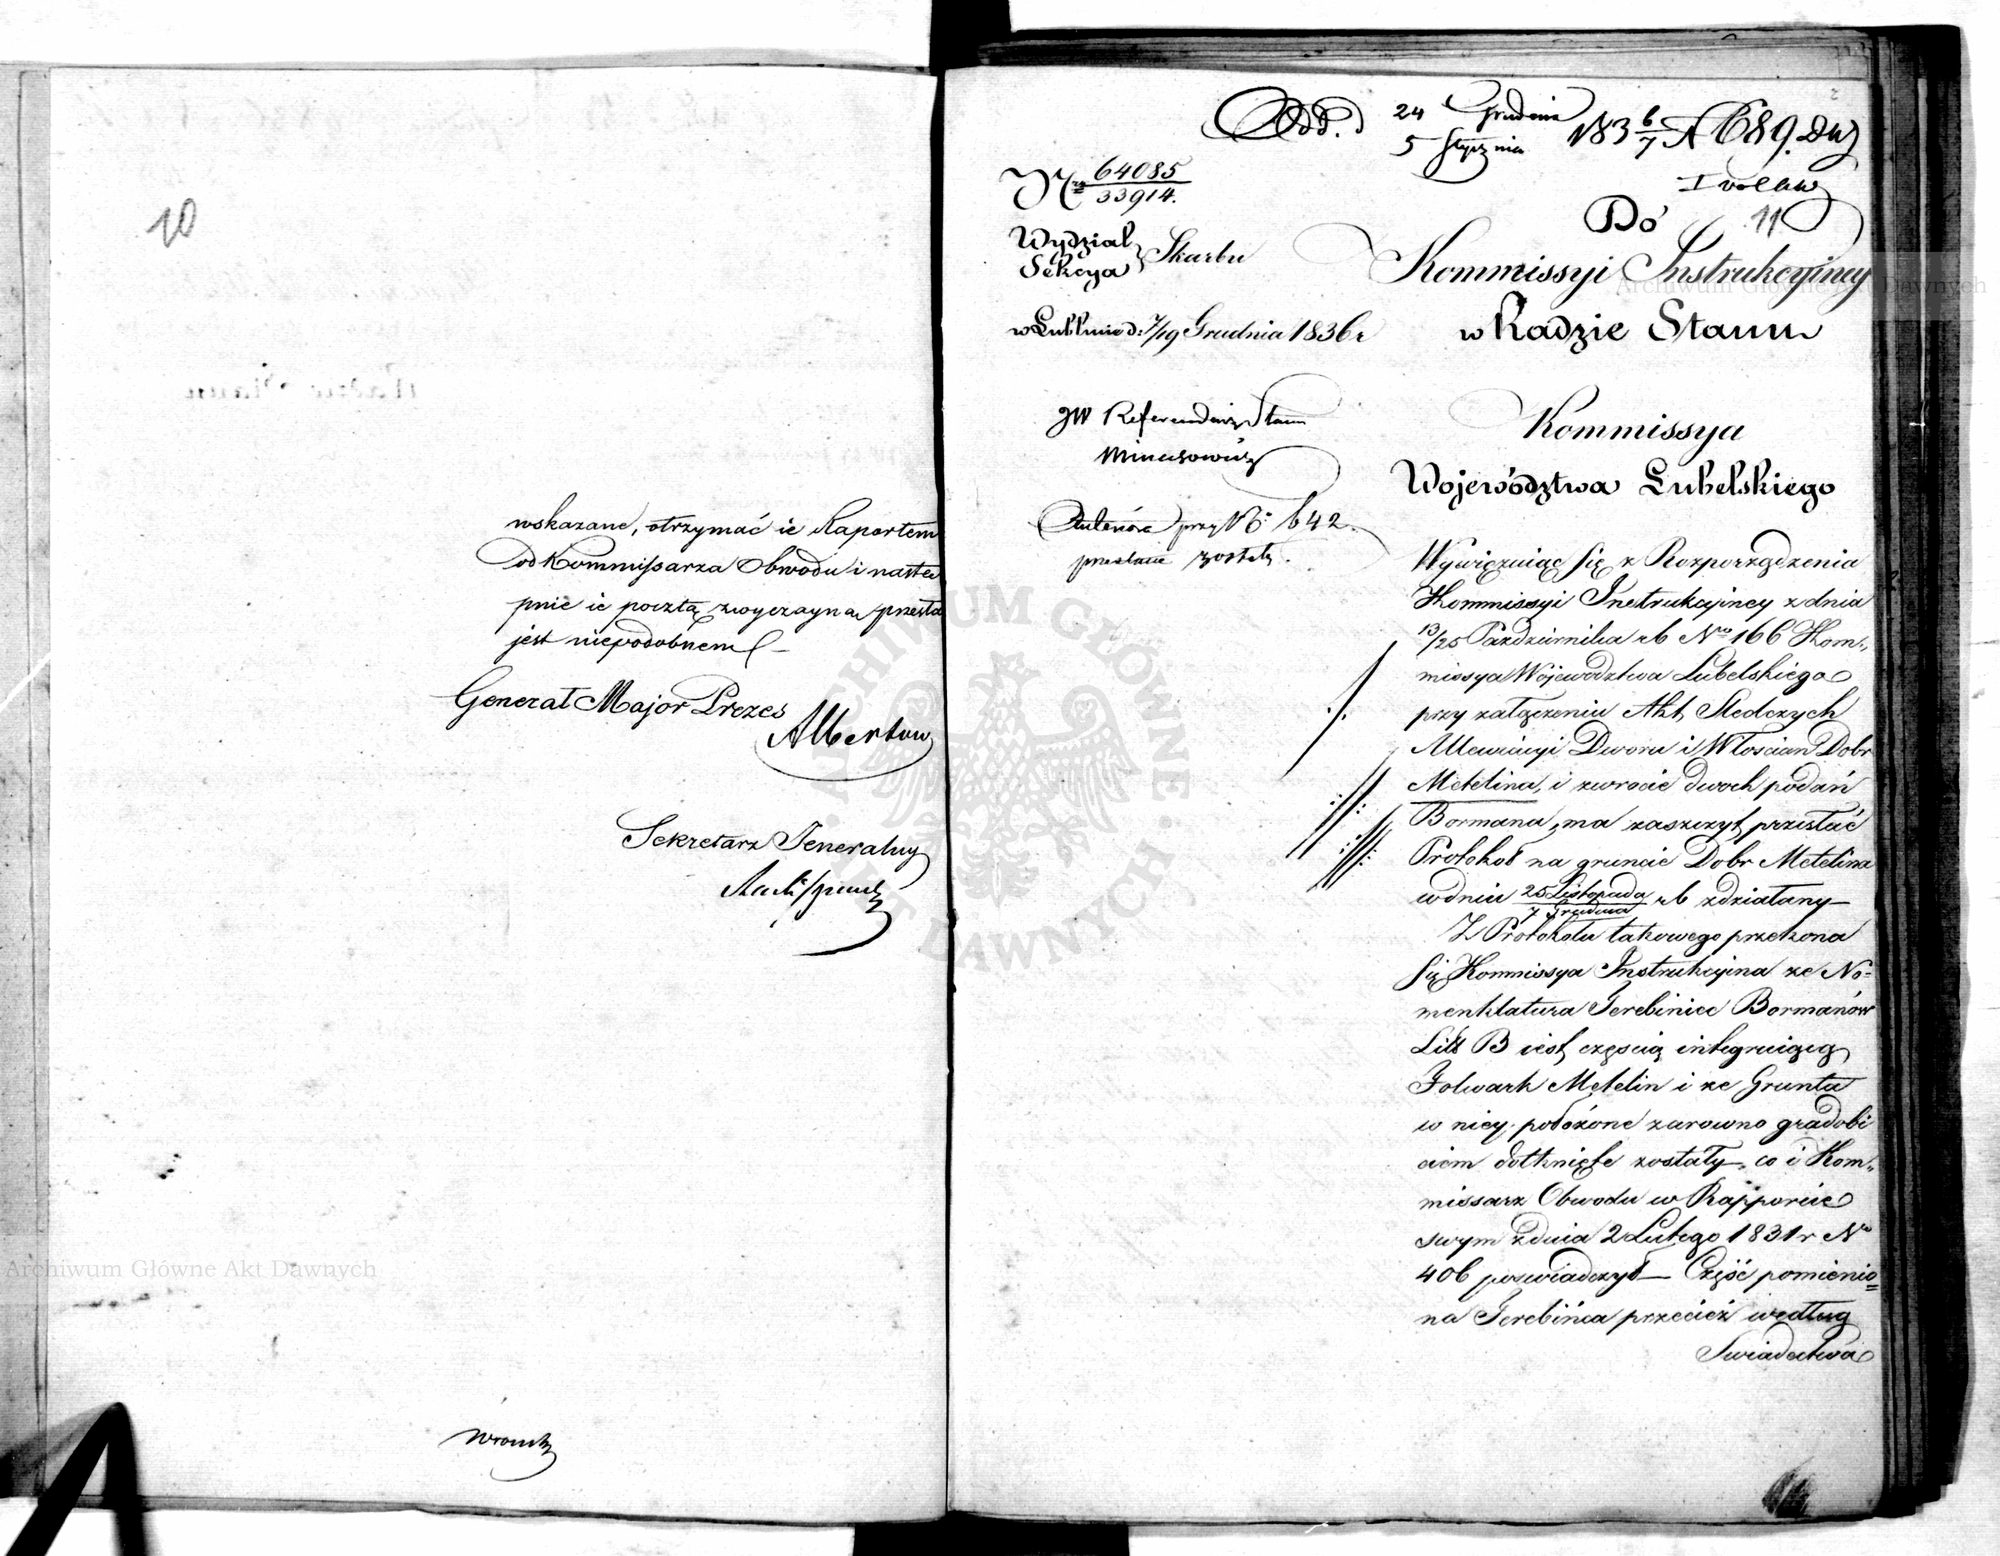 10
wskazane, otrzymać ie Raportem
od Kommissarza Obwodu i nastę
pnie ie pocztą zwyczayną przesła
jest niepodobnem
Generał Major Prezes
Albertow
Sekretarz Jeneralny
Odd. d 24 Grudnia
5 Stycznia 183 6/7 N 689.
11
Nro 64085
33914.
Wydział
Sekcya Skarbu
w Lublinie d: 7/19 Grudnia 1836 r
JW Referendarz Stanu
Minasowicz
przy No 642
przesłane zostały.
Do
Kommissyi Instrukcyiney
w Radzie Stanu
Kommissya
Województwa Lubelskiego
Wywięzuiąc się z Rozporządzenia
Kommissyi Instrukcyiney z dnia
13/25 Pazdziernika rb Nro 166 Kom„
missya Województwa Lubelskiego
przy załączeniu Akt Sledczych
Allewiacyi Dworu i Włoscian Dobr
Metelina, i zwrocie dwoch podań
Bormana, ma zaszczyt przesłać
Protokoł na gruncie Dobr Metelina
w dniu 25 Listopada
7 Grudnia rb zdziałany
Z Protokołu takowego przekona
się Kommissya Instrukcyina ze No-
menklatura Terebiniec Bormanów
Litt B iest częscią integruiącą
Folwark Metelin i ze Grunta
w niey położone zarowno gradobi
ciem dotknięte zostały, co i Kom„
missarz Obwodu w Rapporcie
swym z dnia 2 Lutego 1831 r No
406 poswiadczył — Część pomienio=
na Terebińca przecież według
Swiadectwa
Archiwum Główne Akt Dawnych
Archiwum Główne Akt Dawnych
ARCHIWUM GŁÓWNE AKT DAWNYCH